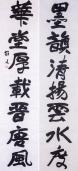 墨韻清揚雲水度
華堂厚載晉唐風